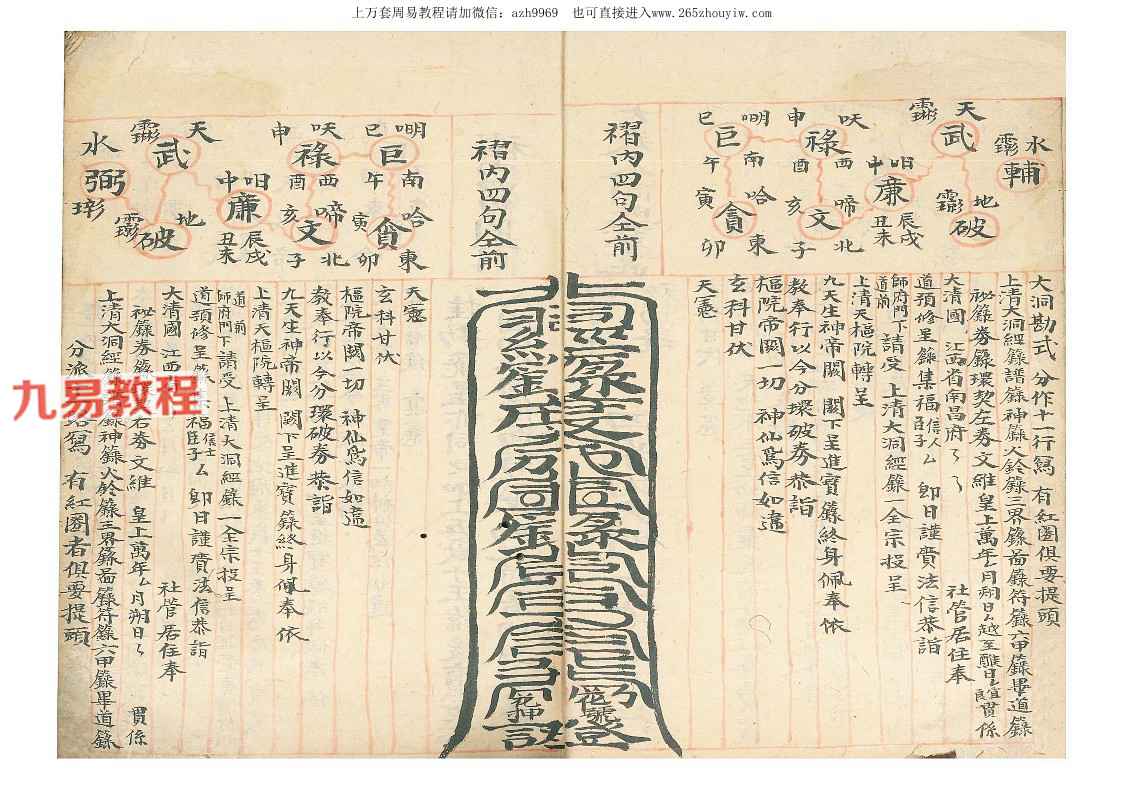 上万套周易教程请加微信：azh9969　也可直接进入www.265zhouyiw.com
水 輔
天 武
地 破
吠 祿 申 酉 西
中 呬 廉 辰戌 丑未
啼 文 亥 子 北
明 巨 巳 午 南
哈 貪 寅 卯 東
褶內四句全前
大洞勘式 分作十一行寫 有紅圈俱要提頭
上清大洞經籙譜籙神籙火鈴籙三界籙畨籙符籙六甲籙畢道籙
秘籙券籙環契左券文維 皇上萬年ム月朔日ム越至醮日ム宜良貫係
大清國 江西省南昌府
社管居住奉
道預修呈籙集福信人臣子ム 即日謹賫法信恭詣
道前師府門下 請受 上清大洞經籙一全宗投呈
上清天樞院轉呈
九天生神帝闕 闕下呈進寶籙終身佩奉依
教奉行以今分環破券恭詣
樞院帝闕一切 神仙爲信如違
玄科甘伏
天憲
花號
花押
褶內四句全前
巳 巨 明 午 南
哈 貪 寅 卯 東
申 祿 吠 酉 西
啼 文 亥 子 北
中 呬 廉 辰戌 丑未
天 武
地 破
水 弼
天憲
玄科甘伏
樞院帝闕一切 神仙爲信如違
教奉行以今分環破券恭詣
九天生神帝闕 闕下呈進寶籙終身佩奉依
上清天樞院轉呈
道前師府門下請受 上清大洞經籙一全宗投呈
道預修呈籙 福信士臣子ム 即日謹賫法信恭詣
大清國 江西
社管居住奉
秘籙券籙 右券文維 皇上萬年ム月朔日 貫係
上清大洞經 籙神籙火鈴籙三界籙畨籙符籙六甲籙畢道籙
分派 寫 有紅圈者俱要提頭
九易教程